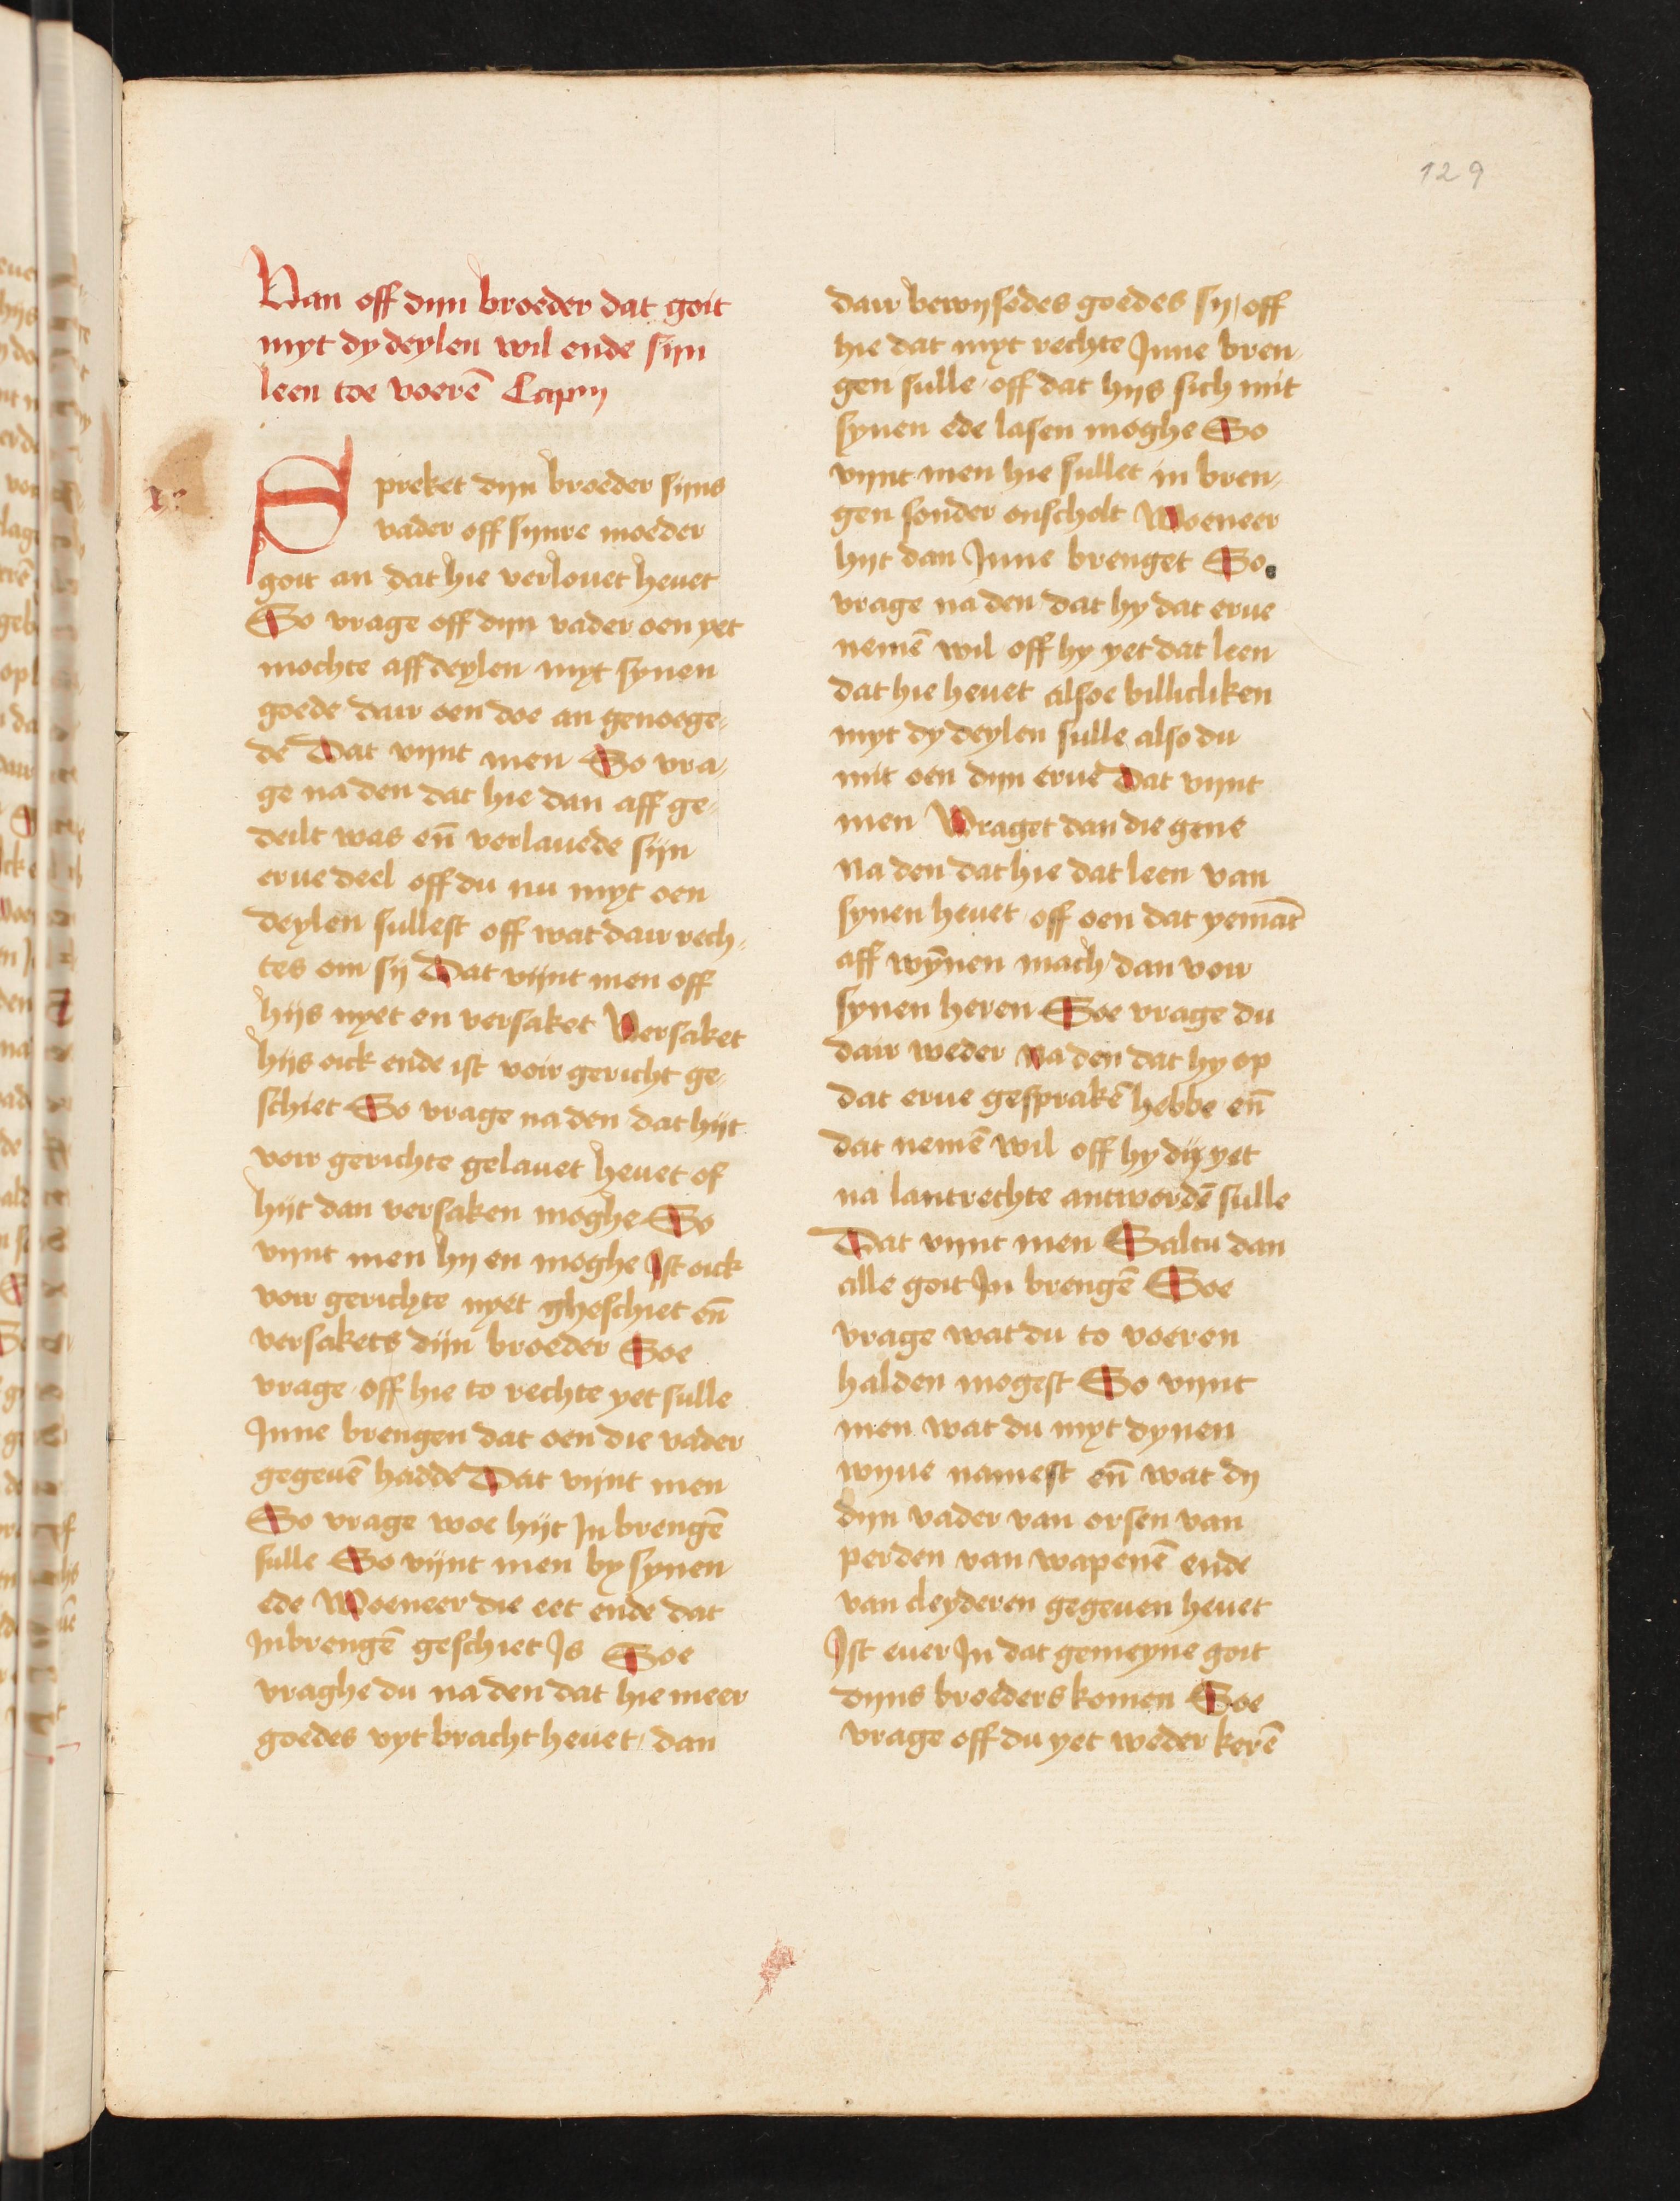 129
Van off dijn broeder dat goit
myt dy deylen wil ende sijn
leen toe voerē Capm
Spreket dijn broeder sijns
vader off sijnre moeder
goit an dat hie verlouet heuet
So vrage off dijn vader oen yet
mochte aff deylen myt synen
goede dair oen doe an genoege-
de Dat vijnt men So vra-
ge na den dat hie dan aff ge-
deilt was eñ verlauede sijn
erue deel off du nu myt oen
deylen sullest off wat dair rech-
tes om sij Dat vijnt men off
hijs nyet en versaket Versaket
hijs oick ende ist voir gericht ge-
schiet So vrage na den dat hijt
voir gerichte gelauet heuet of
hijt dan versaken moghe So
vijnt men hij en moghe Ist oick
voir gerichte nyet gheschiet eñ
versakets dijn broeder Soe
vrage off hie to rechte yet sulle
Inne brengen dat oen die vader
gegeuē hadde Dat vijnt men
So vrage woe hijt In brengē
sulle So vijnt men by synen
ede Woeneer die eet ende dat
Inbrengē geschiet Is Soe
vraghe du na den dat hie meer
goedes vyt bracht heuet dan
dair bewijsedes goedes sij off
hie dat myt rechte Inne bren-
gen sulle off dat hijs sich mit
synen ede lasen moghe So
vijnt men hie sullet in bren-
gen sonder onscholt Woeneer
hijt dan Inne brenget So
vrage na den dat hy dat erue
nemē wil off hy yet dat leen
dat hie heuet alsoe billicliken
myt dy deylen sulle also du
mit oen dijn erue Dat vijnt
men Vraget dan die gene
Na den dat hie dat leen van
synen heuet off oen dat yemāt
aff wȳnen mach dan voir
synen heren Soe vrage du
dair weder Na den dat hy op
dat erue gesprakē hebbe eñ
dat nemē wil off hy dij yet
na lantrechte antwordē sulle
Dat vijnt men Saltu dan
alle goit In brengē Soe
vrage wat du to voeren
halden mogest So vijnt
men wat du myt dynen
wyue namest eñ wat dij
dijn vader van orsen van
perden van wapenē ende
van cleyderen gegeuen heuet
Ist euer In dat gemeyne goit
dijns broeders komen Soe
vrage off du yet weder kerē